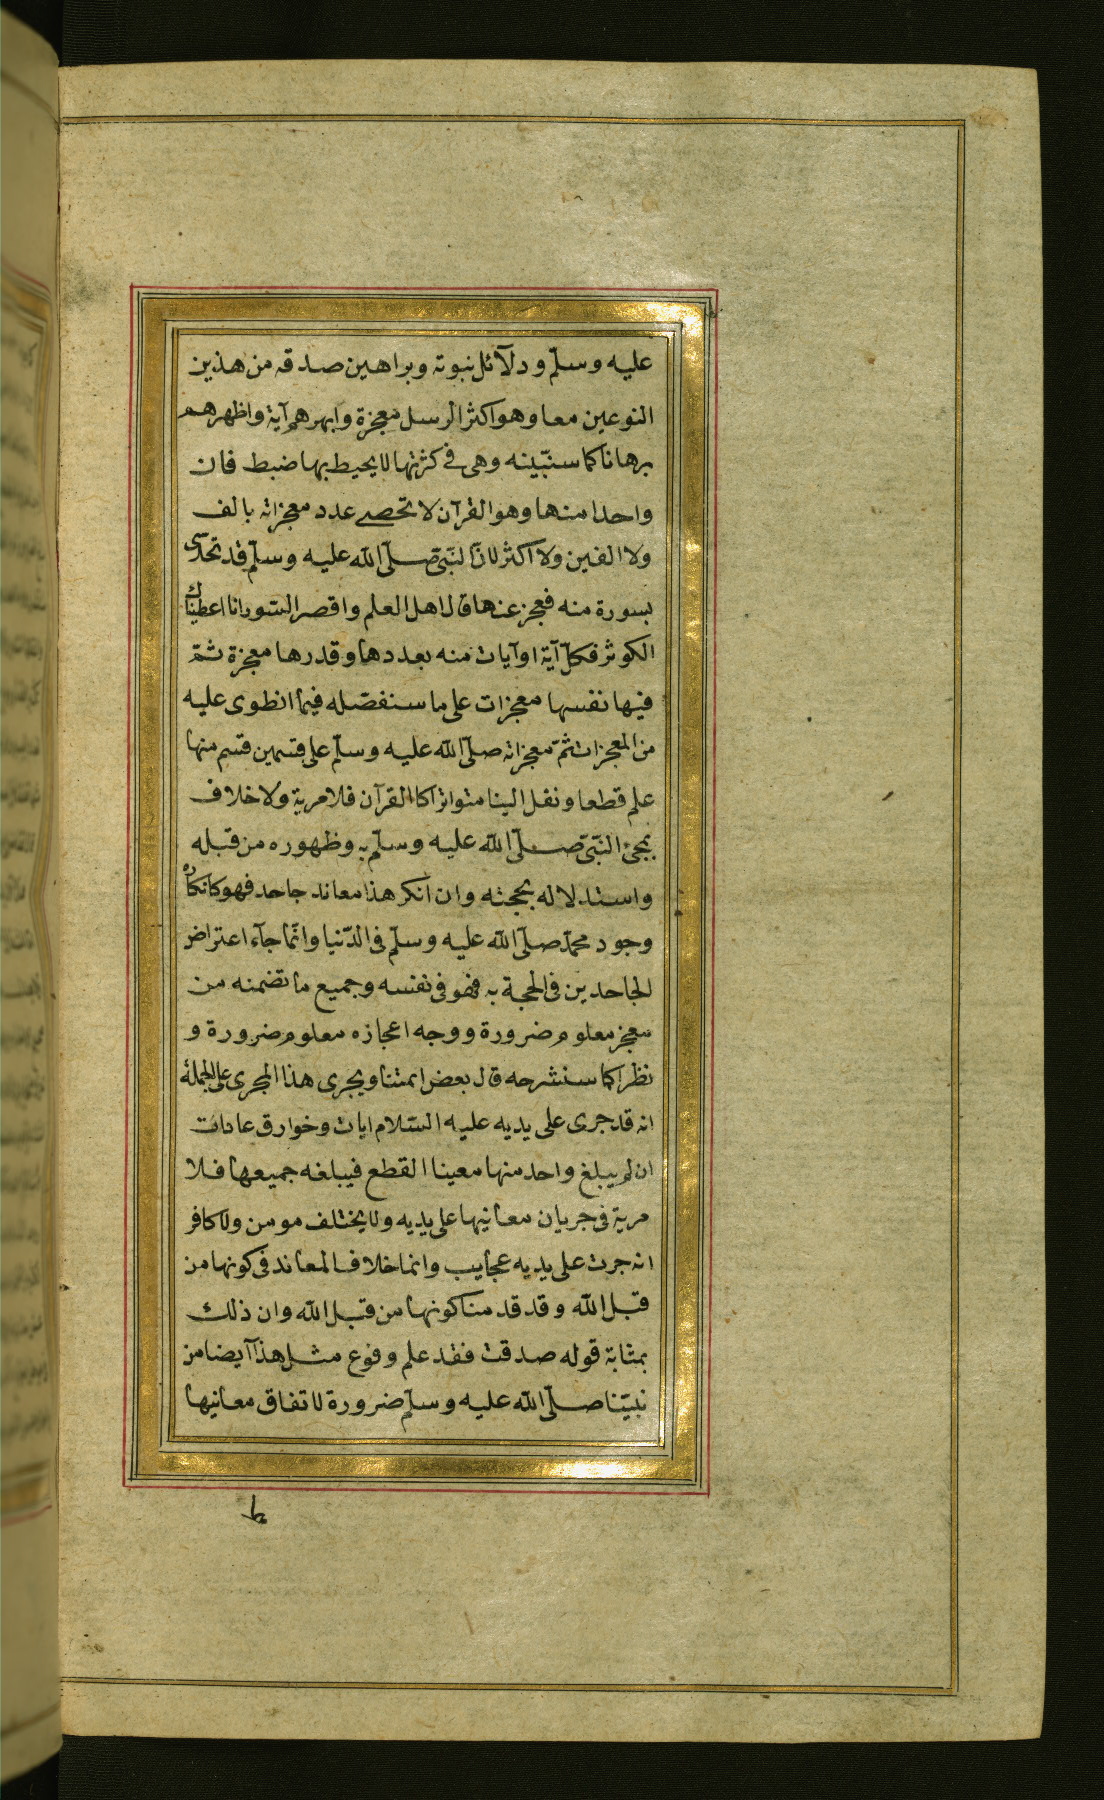 عليه وسلّم ودلآئل نبوته وبراهين صدقه من هذين
النوعين معا وهو اكثر الرسل معجزة وابهرهم آية واظهرهم
برهانا كما سنبّينه وهى فى كثرتها لا يحيط بها ضبط فان
واحدا منها وهو القرآن لا تحصى عدد معجزاته بالف
ولا الفين ولا اكثر لانّ النّبىّ صلّى اللّه عليه وسلّم قد تحدّى
بسورة منه فعجز عنها قال اهل العلم واقصر السّور انا اعطيناك
الكوثر فكلّ آية او آيات منه بعددها وقدرها معجزة ثمّ
فيها نفسها معجزات على ما سنفصّله فيما انطوى عليه
من المعجزات ثمّ معجزاته صلّى اللّه عليه وسلّم على قسمين قسم منها
علم قطعا ونقل الينا متواترا كالقرآن فلا مرية ولا خلاف
بمجئ النّبّى صلّى اللّه عليه وسلّم به وظهوره من قبله
واستدلاله بحجته وان انكر هذا معاند جاحد فهو كانكاره
وجود محمّد صلّى اللّه عليه وسلّم فى الدّنيا وانّما جآء اعتراض
الجاحدين فى الحجة به فهو فى نفسه وجميع ما تضمنه من
معجز معلوم ضرورة ووجه اعجازه معلوم ضرورة و
نظرا كما سنشرحه قال بعض ايمتنا ويجرى هذا المجرى على الجملة
انه قد جرى على يديه عليه السّلام ايات وخوارق عادات
ان لم يبلغ واحد منها معينا القطع فيبلغه جميعها فلا
مرية فى جريان معانيها على يديه ولا يختلف مومن ولا كافر
انه جرت على يديه عجايب وانما خلاف المعاند فى كونها من
قبل اللّه وقد قدمنا كونها من قبل اللّه وان ذلك
بمثابة قوله صدقت فقد علم وقوع مثل هذا آيضا من
نبيّنا صلّى اللّه عليه وسلّم ضرورة لاتفاق معانيها